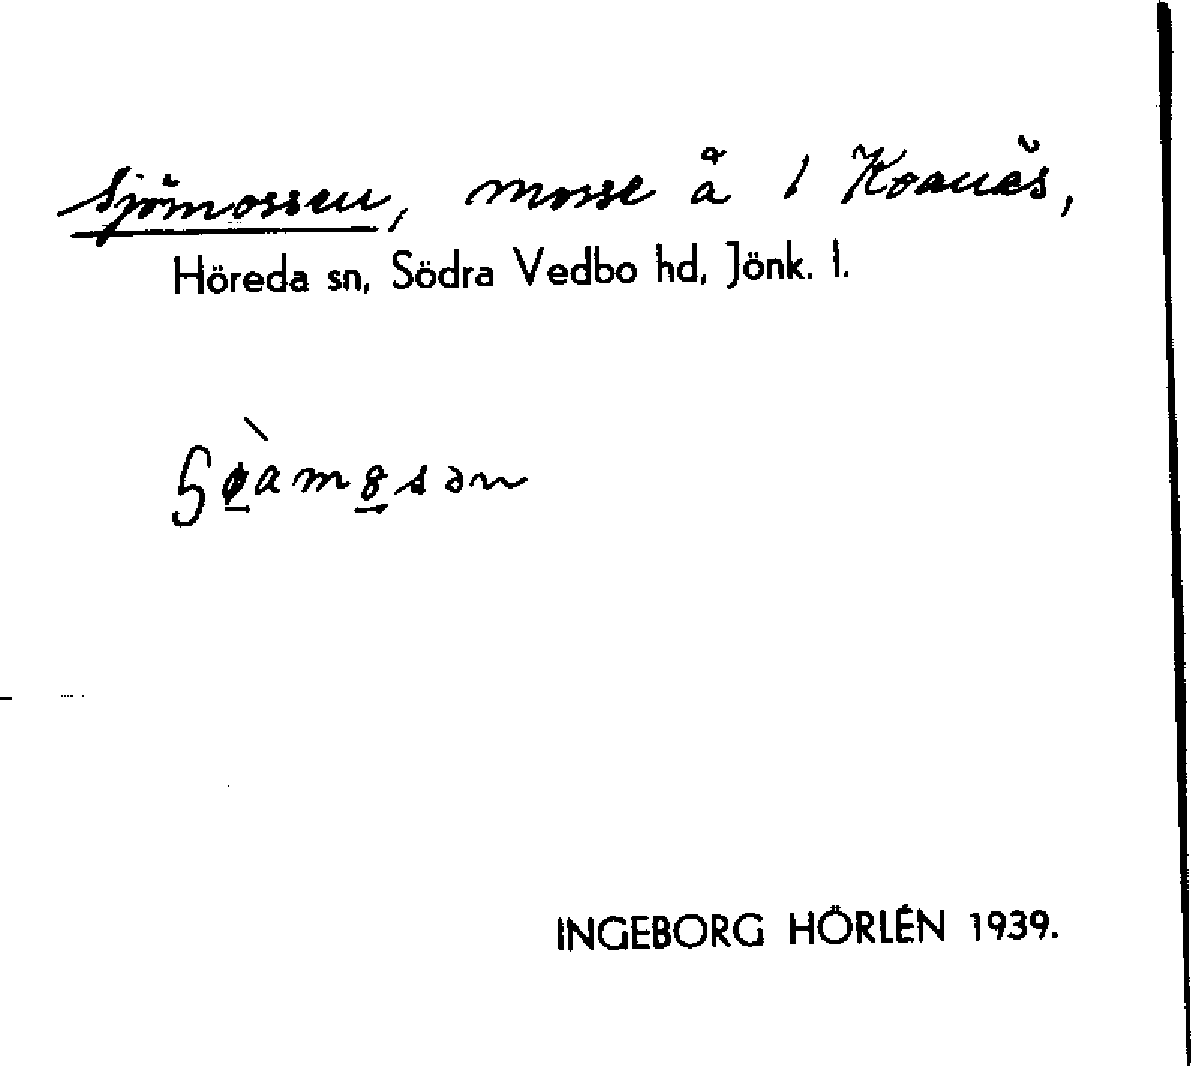 Sjömossen, mosse å 1 Kvanäs,
Höreda sn, Södra Vedbo hd, Jönk. l.
INGEBORG HÖRLÉN 1939.